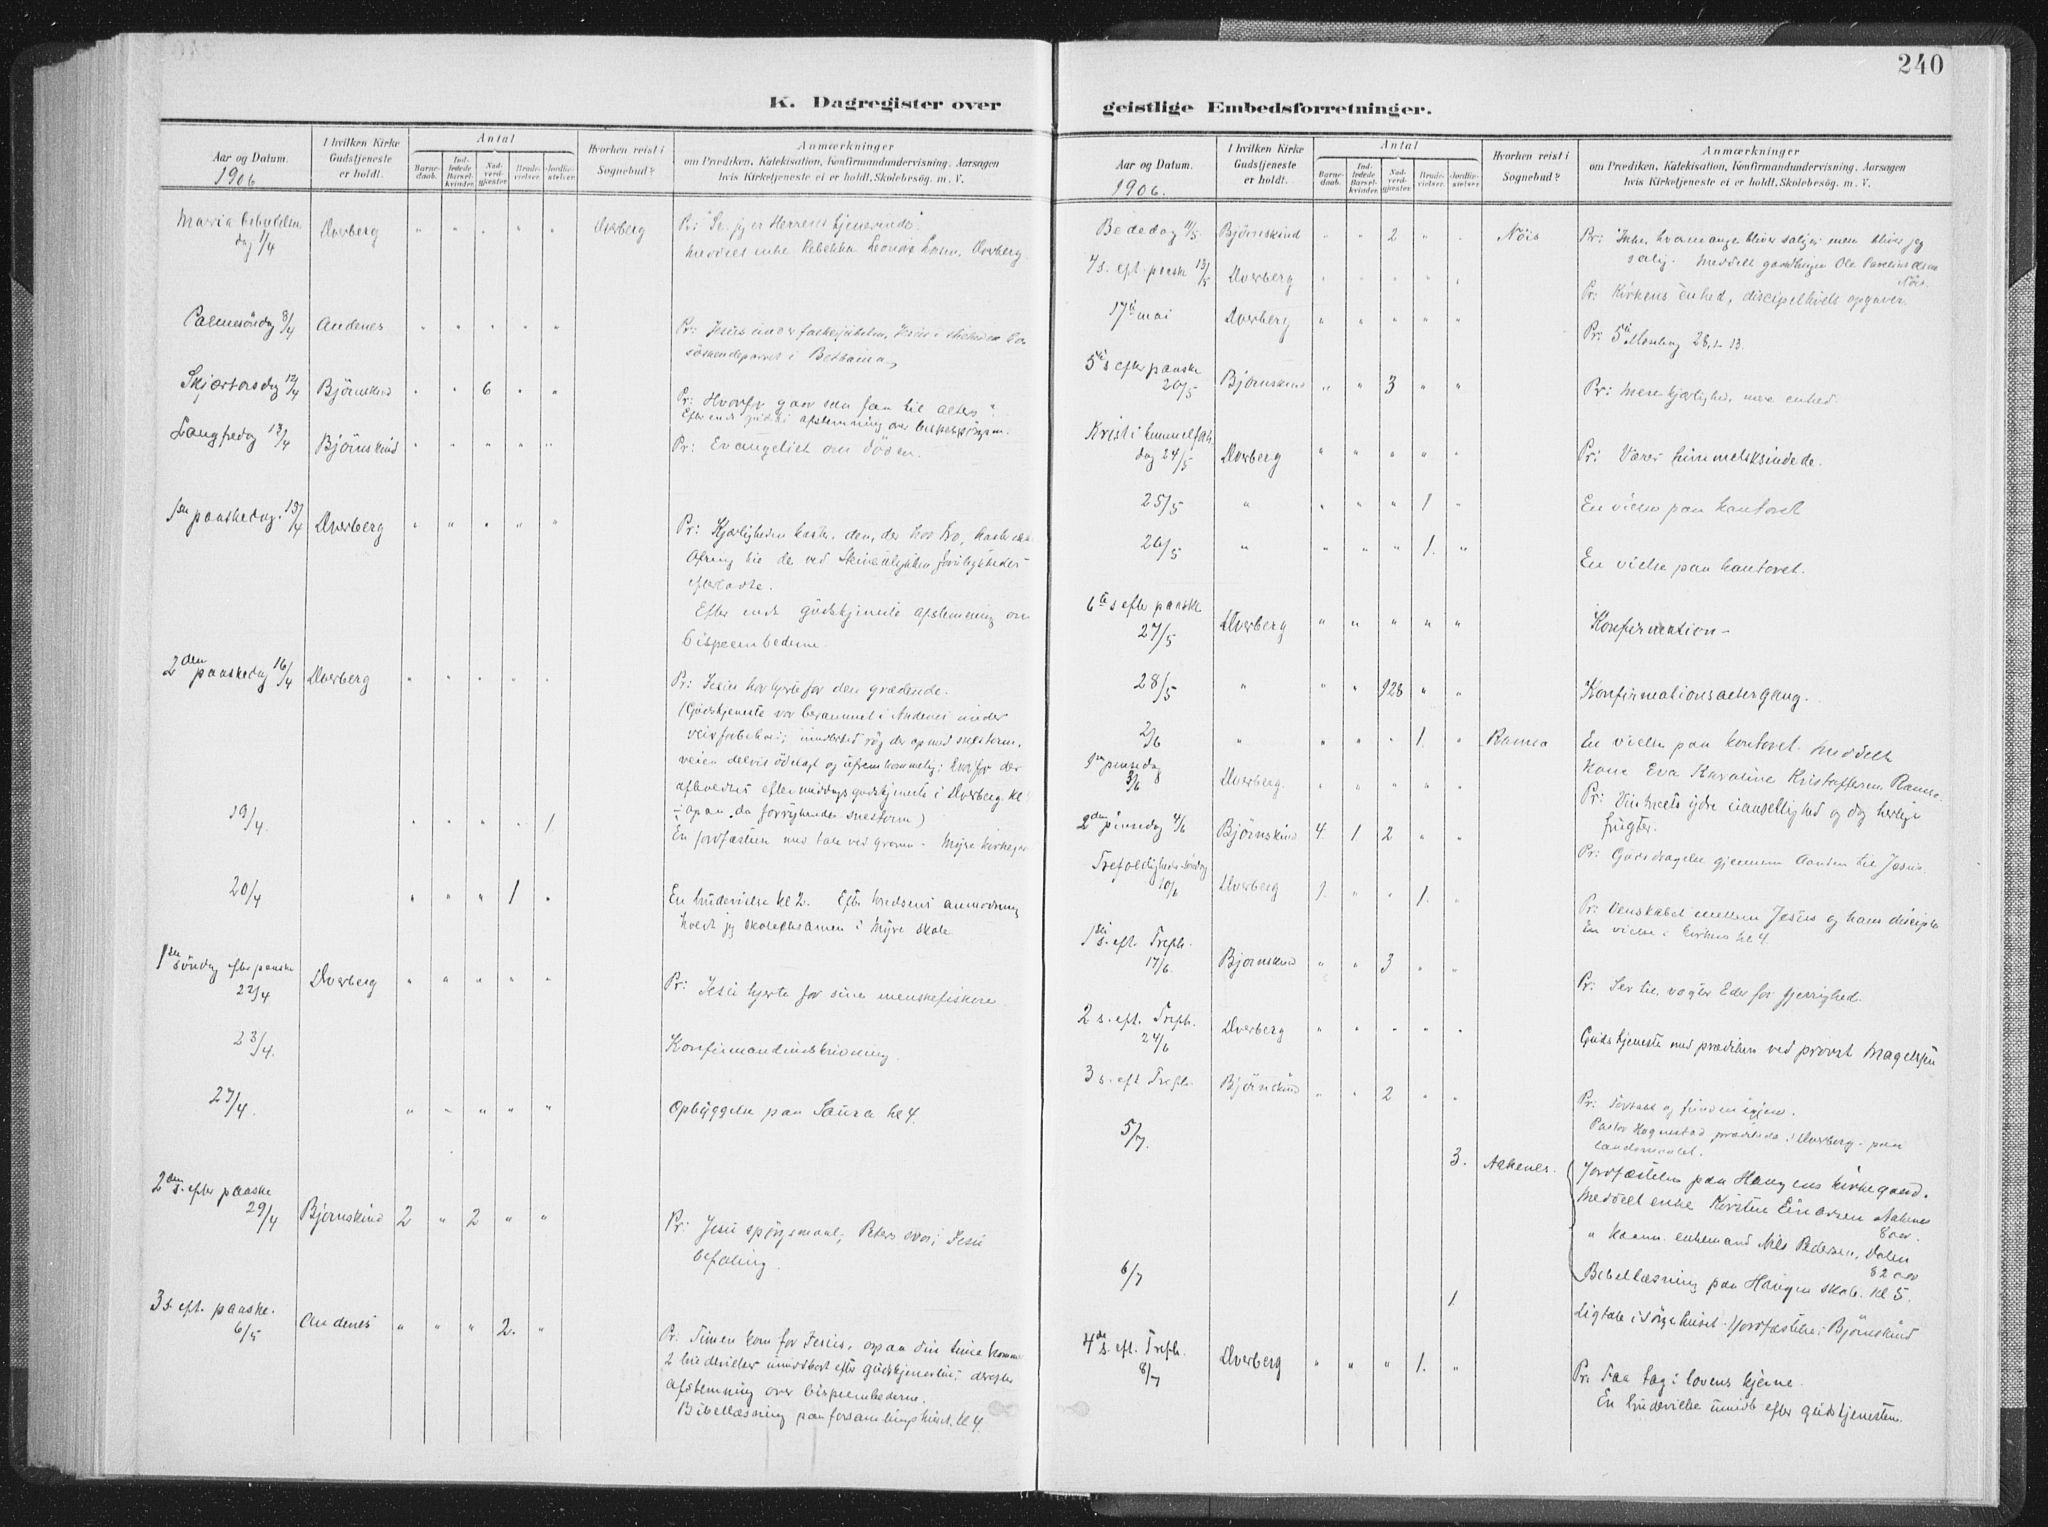 240
K. Dagregister over
geistlige Embedsforretninger.
Aar og Datum.
1906
I hvilken Kirke Gudstjeneste er holdt.
Antal
Barnedaab.
Indledede Barselkvinder.
Nadverdgjester
Brudevielser.
Jordfæstelser.
Hvorhen reist i Sognebud?
Anmærkninger
om Prædiken, Katekisation, Konfirmandundervisning, Aarsagen
hvis Kirketjeneste ei er holdt, Skolebesøg. m. V.
Maria bebudelses
dag 1/4 Dverberg " " " " " Dverberg Pr: "Se, jeg er Herrens tjenerinde"
meddelt enke Rebekka Dverberg
Palmesöndag 8/4 Andenes " " " " " Pr: Jesus under folkejubelen, Jesus i
söskendeparret i Bethania
Skjærtorsdag 12/4 Björnskind " " 6 " " Pr: Hvorfor gaar man til alters?
Efter endt afstemning over
Langfredag 13/4 Björnskind " " " " " Pr: Evangeliet om döden.
1ste paaskedag 15/4 Dverberg " " " " " Pr: Kjærligheden
Ofring til de ved
efterladte.
Efter endt gudstjeneste afstemning om
bispeembederne.
2den paaskedag 16/4 Dverberg " " " " " Pr: Jesus har hjerte for den grædende.
(Gudstjeneste var berammet i Andenes under
veirforbehold; der op med snestorm,
veien delvis ödelagt og ufremkommelig; Derfor
afholdtes eftermiddagsgudstjeneste i Dverberg kl
da forrygende snestorm)
19/4. " " " " 1 En jordfæstelse med tale ved graven - Myre kirkegaard
20/4 " " " 1 " En brudevielse kl 2. Efter kredsens anmodning
holdt jeg skoleeksamen i Myre skole
1ste söndag efter paaske
22/4 Dverberg " " " " " Pr: Jesu hjerte for sine menskefiskere.
23/4. Konfirmandindskrivning.
27/4. " " " " " Opbyggelse paa Saura kl 4.
2den s. efter paaske
29/4 Björnskind 2 " 2 " " Pr: Jesu spörgsmaal; Peters svar; Jesu
befaling.
3 s. eft. paaske.
6/5 Andenes " " " 2. " Pr: Timen kom for Jesus, ogsaa din time kommer
2 brudevielser umidbart efter gudstjenesten; derefter
afstemning over bispeembederne.
Bibellæsning paa forsamlingshuset kl 4.
Aar og Datum.
1906.
I hvilken Kirke Gudstjeneste er holdt.
Antal
Barnedaab.
Indledede Barselkvinder.
Nadverdgjester
Brudevielser.
Jordfæstelser.
Hvorhen reist i Sognebud?
Anmærkninger
om Prædiken, Katekisation, Konfirmandundervisning, Aarsagen
hvis Kirketjeneste ei er holdt, Skolebesøg. m. V.
Bededag 11/5 Björnskind " " 2 " " Nöis Pr: Ikke, hvormange bliver salige, men bliver jeg
salig. Meddelt gaardbruger Ole
Nöis.
4 s. eft. paaske 13/5 Dverberg " " " " " Pr: Kirkens enhed, discipellivets opgaver.
17de mai Dverberg " " " " " Pr: 5te Mosebog 28, 1-13.
5te s efter paaske
20/5 Björnskind " " 3 " " Pr: Mere kjærlighed, mere enhed.
Kristi himmelfarts
dag 24/5 Dverberg " " " " " Pr: Værer himmelsksindede.
25/5 " " " " 1. " En vielse paa kontoret
26/5 " " " " 1. " En vielse paa kontoret.
6te s efter paaske
27/5 Dverberg " " " " " Konfirmation -
28/5 " " " 928 " " Konfirmationsaltergang.
2/6 " " " " 1. " Ramsa En vielse paa kontoret. Meddelt
kone Eva Karoline Kristoffersen Ramsa.
1ste pinsedag
3/6 Dverberg. " " " " " Pr: Vintræets ydre uanselighed og dog herlige
frugter.
2den pinsedag 4/6 Björnskind 4. 1 2 " " Pr: Gudsdragelse gjennem Aanden til Jesus.
Trefoldigheds-söndag
10/6 Dverberg 1. " " 1. " Pr: Venskabet mellem Jesus og hans disciple
En vielse i kirken kl 4
1ste s. eft. Trefh.
17/6. Björnskind " " 3 " " Pr: Ser til, vogter Eder for gjerrighed.
2 s. eft. Trefh.
24/6 Dverberg " " " " " Gudstjeneste med prædiken ved provst Magelssen
3 s. eft Trefh. Björnskind " " 2 " " Pr: Fortabt og funden igjen.
Pastor Hognestad prædikede i Dverberg - paa
landsmaalet.
5/7. 3. Aakenes. Jordfæstelse paa Haugens kirkegaard.
Meddelt enke Kirsten Einarsen Aakenes
80 aar.
" enkemand Nils Pedersen, Dalen
82 aar
Bibellæsning paa Haugen skole. kl 5.
6/7 1. Ligtale i sörgehuset. Jordfæstelse i Björnskind
4de s. eft. Trefh.
8/7 Dverberg " " " 1. " Pr: Faa tag i lovens kjerne.
En brudevielse umidb efter gudstjenesten.